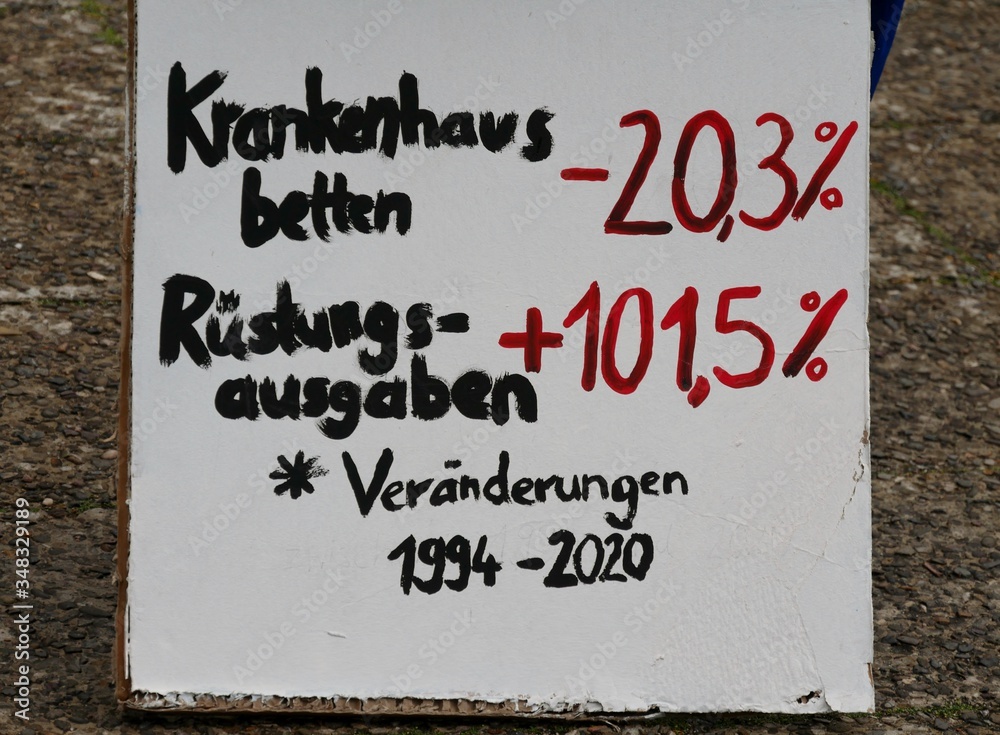 Krankenhaus -20,3%
betten
Rüstungs- +101,5%
ausgaben
* Veränderungen
1994-2020
Adobe Stock | #348329189